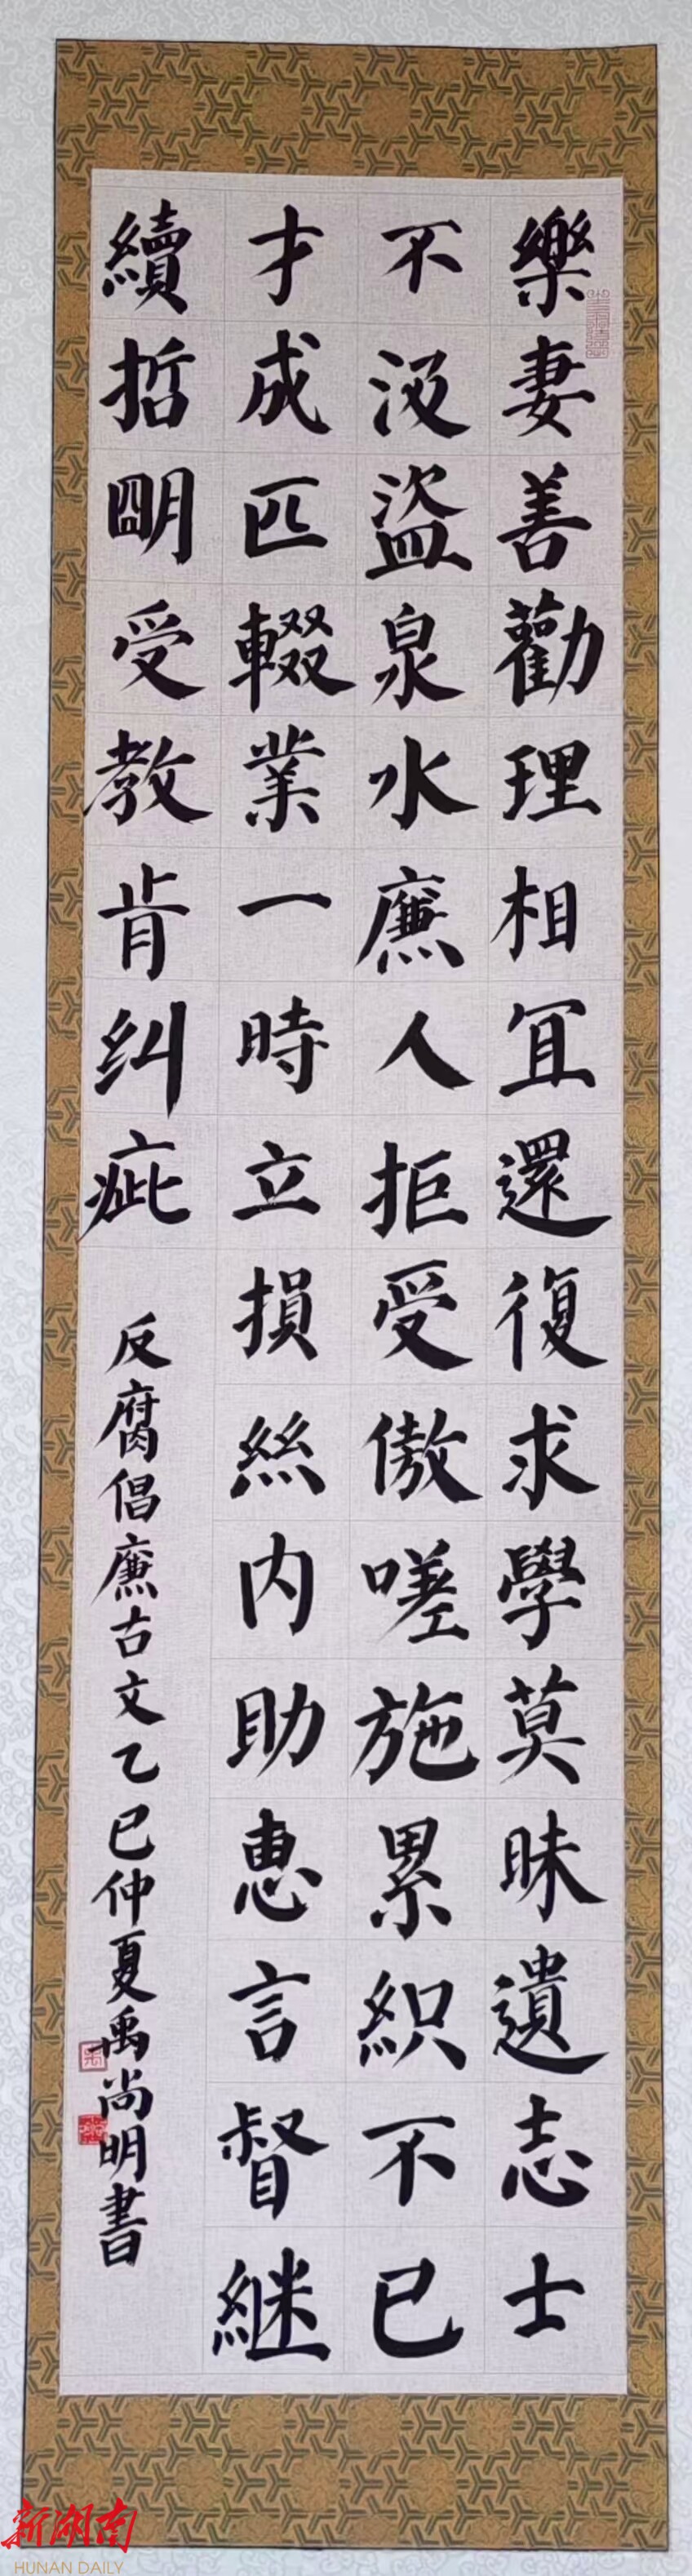 樂妻善勸理相宜還復求學莫昧遺志士
不汲盜泉水廉人拒受傲嗟施累織不已
才成匹輟業一時立損絲内助惠言督継
續哲明受教肯纠疵
反腐倡廉古文乙巳仲夏禹尚明書
新湖南
HUNAN DAILY